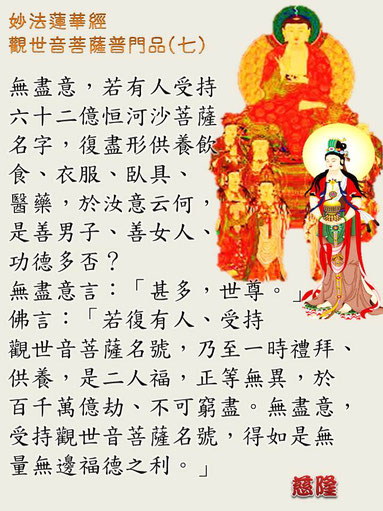 妙法蓮華經
觀世音菩薩普門品(七)
無盡意，若有人受持
六十二億恒河沙菩薩
名字，復盡形供養飲
食、衣服、臥具、
醫藥，於汝意云何，
是善男子、善女人、
功德多否？
無盡意言：「甚多，世尊。」
佛言：「若復有人、受持
觀世音菩薩名號，乃至一時禮拜、
供養，是二人福，正等無異，於
百千萬億劫、不可窮盡。無盡意，
受持觀世音菩薩名號，得如是無
量無邊福德之利。」
慈隆